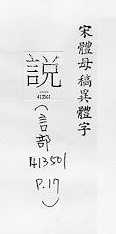 宋體母稿異體字
說
413501
(言部
413501
P.17)